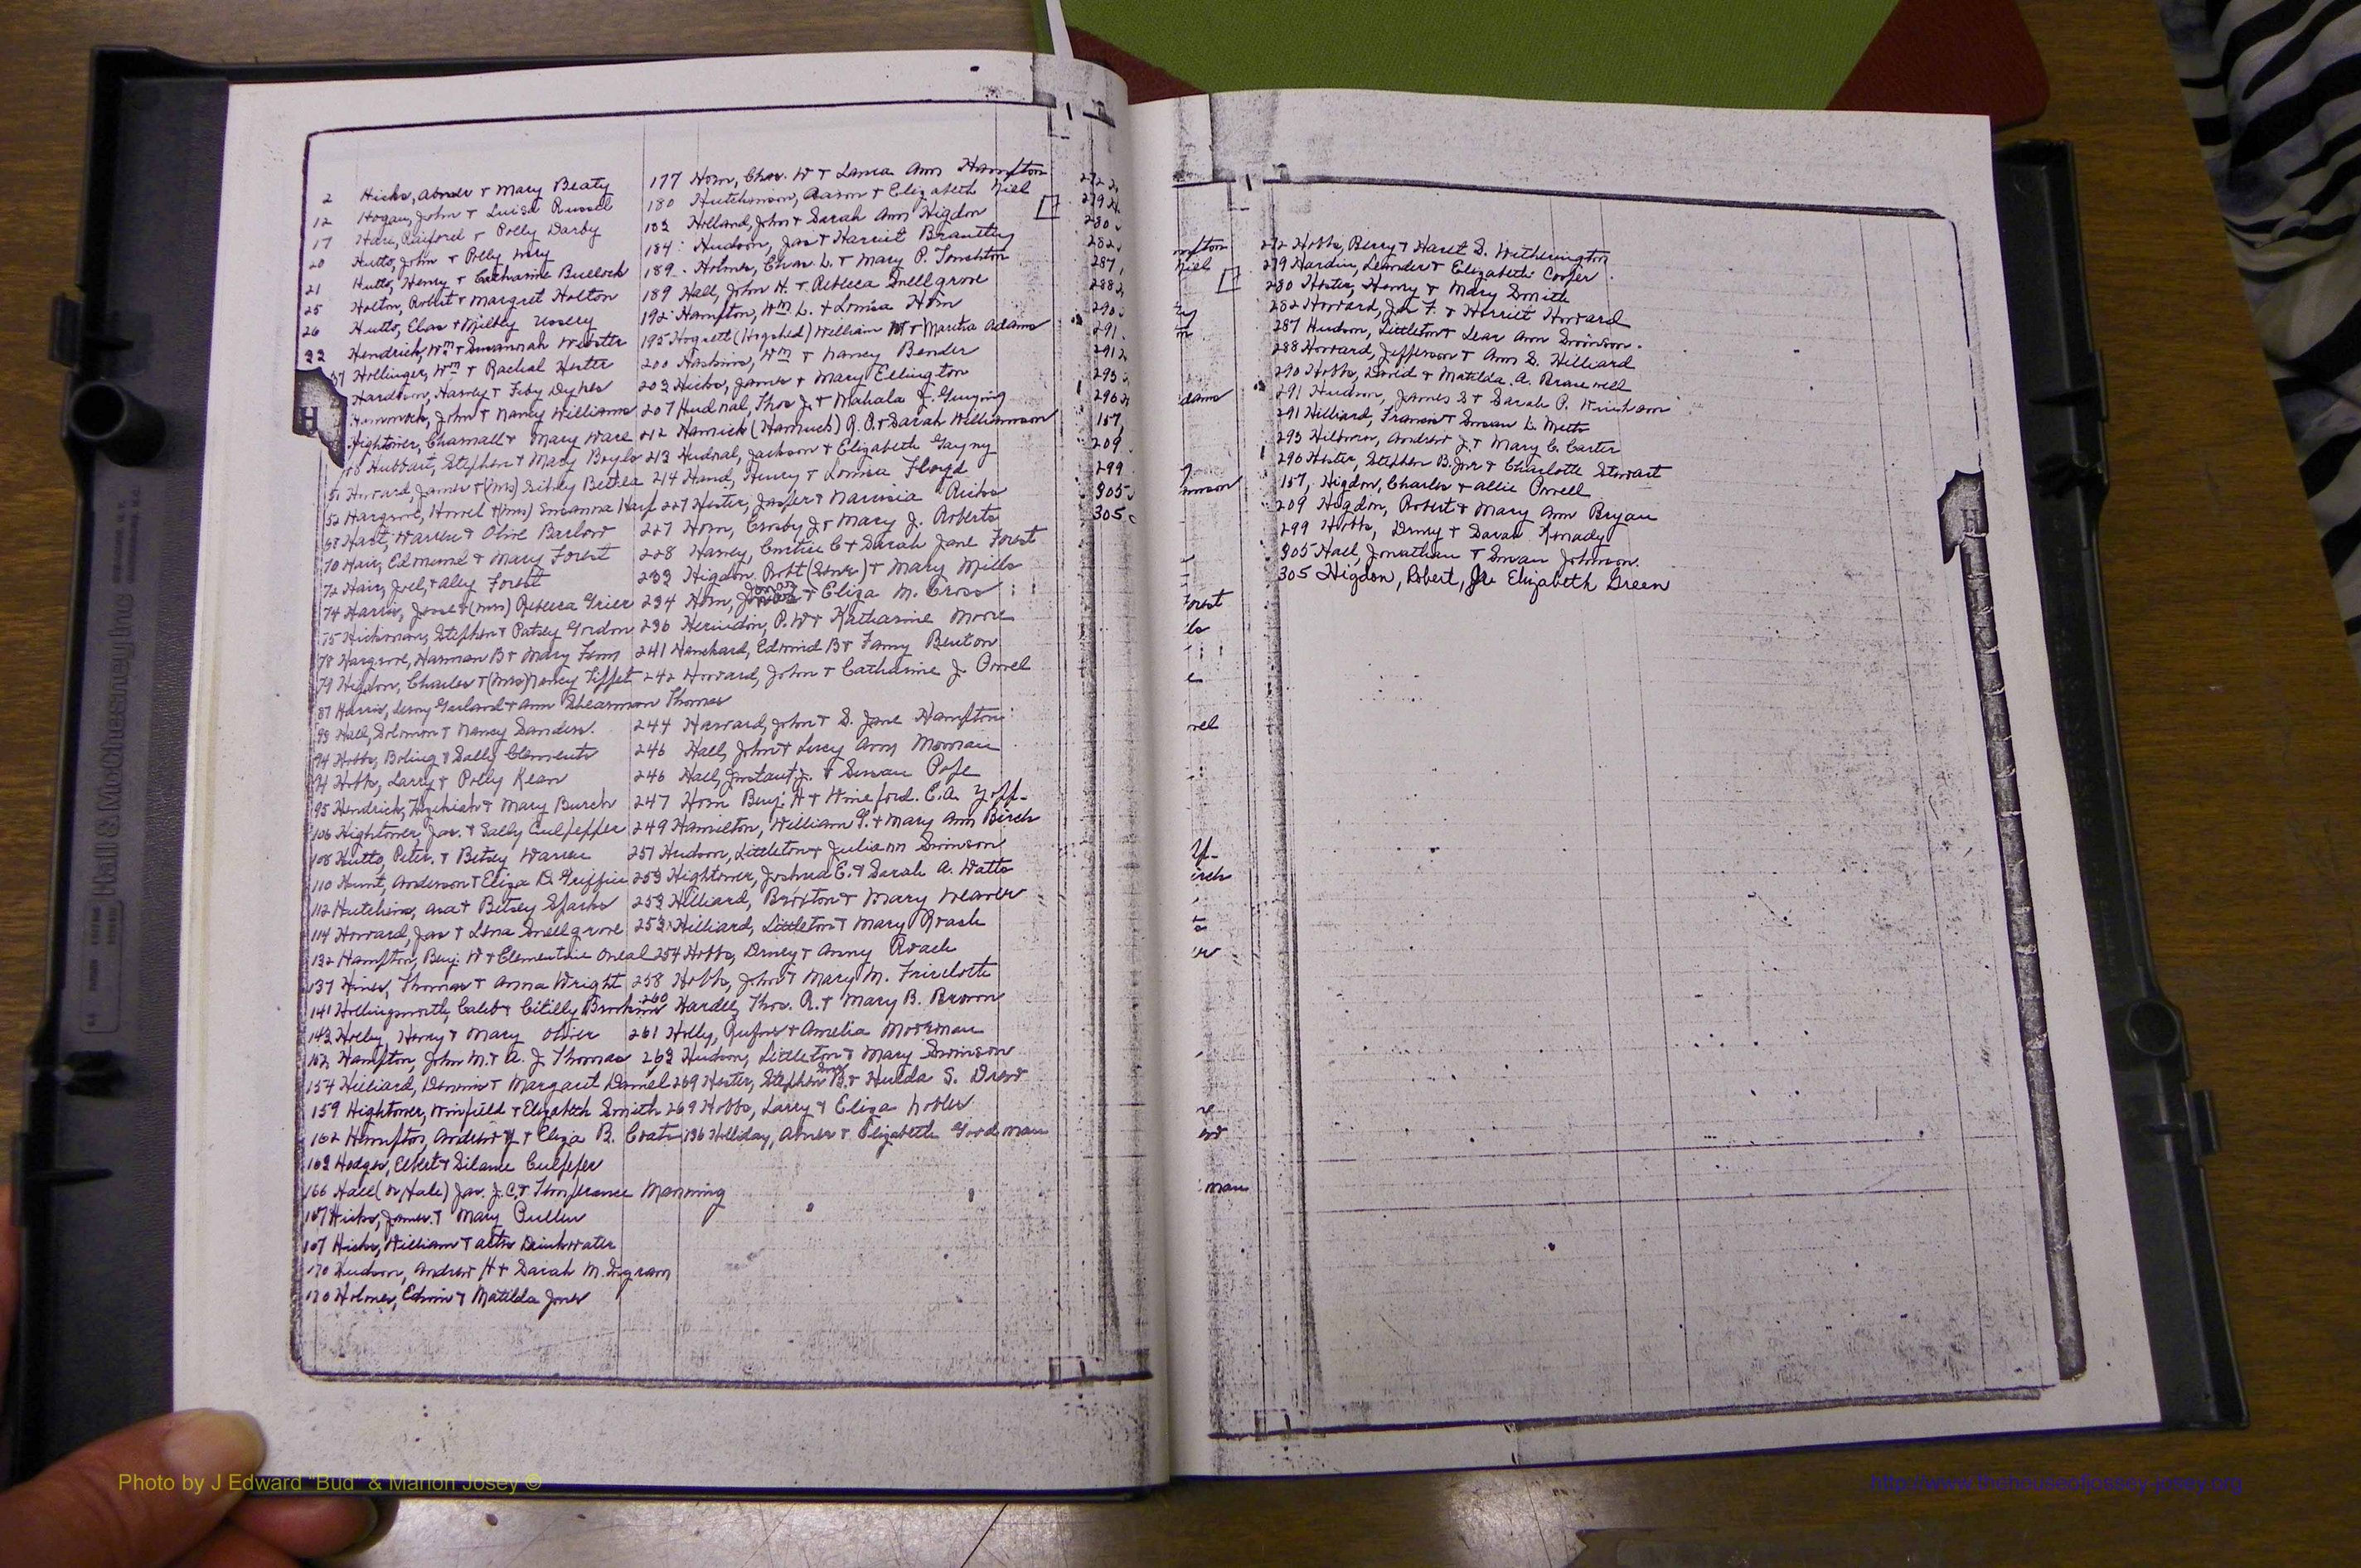 2 Hicks, Abner + Mary Beaty
12 Hogan, John + Luisa Russel
17 Hare, Raiford + Polly Darby
20 Hutto, John + Polly
21 Hutto, Henry + Catharine Bullock
25 Holton, Robert + Margret Holton
26 Hutto, Elias + Milbey Ussery
33 Hendrick, Wm + Susannah Webster
37 Hollinger, Wm + Rachal Hester
Hardison, Harvey + Feby Dykes
Hammock, John + Nancy Williams
H
Hightower, Charnall + Mary Ware
Hubbart, Stephen + Mary Boyls
51 Howard, James + (Mrs) Sibby Bettes
52 Hargrove, Howel + (Mrs) Susanna Harp
68 Hart, Warren + Olive Barlow
70 Hair, Edmund + Mary Forest
72 Hair, Joel, + Aley Forest
74 Harris, Jesse + (Mrs) Rebecca Grier
75 Hickman, Stephen + Patsey Gordon
78 Hargrove, Harman B + Mary Finn
79 Higdon, Charles + (Mrs) Nancy Tippet
87 Harris, Leroy Garland + Ann Shearman Thomas
93 Hall, Solomon + Nancy Sanders.
94 Hobbs, Boling + Sally Clements
94 Hobbs, Larry + Polly Kean
95 Hendrick, Hezekiah + Mary Burch
106 Hightower, Jas. + Sally Culpepper
108 Hutto, Peter. + Betsey Warren
110 Hunt, Anderson + Eliza D. Griffin
112 Hutchins, Asa + Betsey Sparks
114 Howard, Jas + Lena Snellgrove
132 Hampton, Benj. W + Elementine Oneal
137 Hines, Thomas + Anna Wright
141 Hollingsworth, Caleb + Citilly Brookins
143 Holley, Henry + Mary Oliver
152 Hampton, John M. + A. J. Thomas
154 Hilliard, Dennis + Margaret Daniel
159 Hightower, Winfield + Elizabeth Smith
162 Hampton, Andrew Y + Eliza B. Coats
163 Hodges, Elbert + Silame Culpeper
166 Hall (or Hale) Jas. J. C. + Temperance Manning
167 Hicks, James. + Mary Pullen
167 Hicks, William + Drinkwater
170 Hudson, Andrew H + Sarah M. Ingram
170 Holmes, Edwin + Matilda Jones
177 Horn, Chas. W + Laura Ann Hampton
180 Hutchinson, Aaron + Elizabeth Niel
183 Holland, John + Sarah Ann Higdon
184 Hudson, Jas + Harriet Brantley
189 Holmes, Chas. L. + Mary P. Touchton
189 Hall, John H. + Rebecca Snellgrove
192 Hampton, Wm L. + Louisa Horn
195 Hogsett (Hogshed) William M + Martha Adams
200 Haskins, Wm + Nancy Bender
203 Hicks, James + Mary Ellington
207 Hudnal, Thos J. + Mahala J.
212 Hamick (Hamuck) R. O. + Sarah Williamson
213 Hudnal, Jackson + Elizabeth
214 Hand, Henry + Louisa Floyd
227 Hester, Jasper + Narcisia Ricks
227 Horn, Crosby J + Mary J. Roberts
228 Harvey, Curtice C + Sarah Jane Forest
233 Higdon, Robt (Senr) + Mary Mills
234 Horn, + Eliza M. Cross
236 Herndon, P. W + Katharine Moore
241 Hanchard, Edmind B + Fanny Benton
242 Howard, John + Catharine J. Orrel
244 Harward, John + S. Jane Hampton
246 Hall, John + Lucy Ann Morman
246 Hall, J. + Susan Pope
247 Horn Benj. H + Wineford. E. A.
249 Hamilton, William G. + Mary Ann Birch
251 Hudson, Littleton + Juliann Swinson
253 Hightower, Joshua E. + Sarah A. Watts
253 Hilliard, Brixton + Mary Weaver
253 Hilliard, Littleton + Mary Roach
254 Hobbs, Drury + Anny Roach
258 Hobbs, John + Mary M.
260 Hardee, Thos. R. + Mary B. Brown
261 Holly, Rufus + Amelia Moreman
263 Hudson, Littleton + Mary Swinson
269 Hester, Stephen B. Senr + Hulda S. Drew
269 Hobbs, Larry + Eliza Nobles
136 Holliday, Abner + Elizabeth Goodman
272
279
280
282
287
288
290
291
291
293
296
157
209
299
305
305
272 Hobbs, Berry + Haret S. Witherington
279 Hardin, Leander + Elizabeth Cooper
280 Hester, Henry + Mary Smith
282 Howard, Jas F. + Harriet Howard
287 Hudson, Littleton + Lear Ann Swinson.
288 Howard, Jefferson + Ann S. Hilliard
290 Hobbs, David + Matilda. A. Brasewell
291 Hudson, James S + Sarah P. Windham
291 Hilliard, Francis + Susan L. Metts
293 Hilburn, Andrew J. + Mary C. Carter
296 Hester, Stephen B. Jnr + Charlotte Stewart
157, Higdon, Charles + Allie Orrell
209 Higdon, Robert + Mary Ann Bryan
299 Hobbs, Drury + Sarah Kenady
305 Hall, Jonathan + Susan Johnson.
305 Higdon, Robert, Jr. Elizabeth Green
H
Hall & McChesney, Inc
Photo by J Edward "Bud" & Marion Josey ©
http://www.thehouseofjossey-josey.org